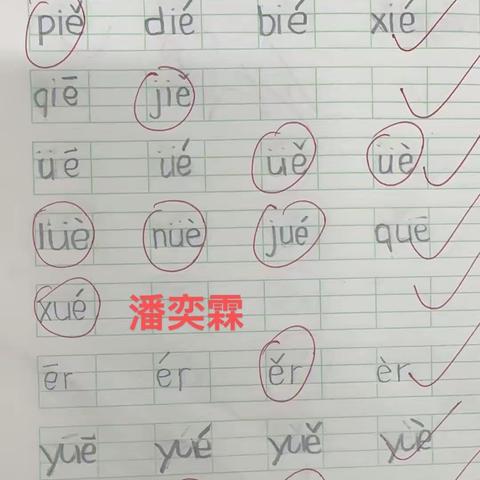 piě dié bié xié
qiē jiě
üē üé üě üè
lüè nüè jué quē
xué 潘奕霖
ēr ér ěr èr
yuē yué yuě yuè